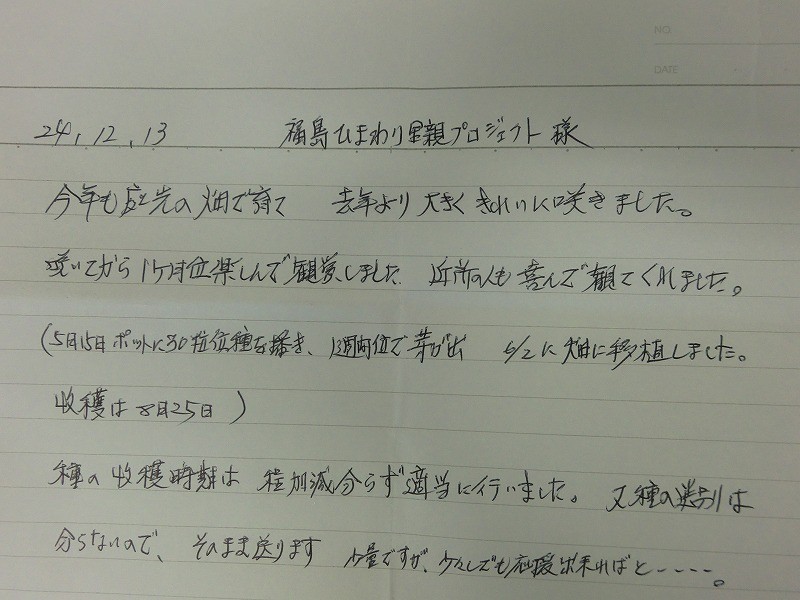 NO.
DATE
24, 12, 13 福島ひまわり里親プロジェクト様
今年も庭先の畑で育て 去年より大きくきれいに咲きました。
咲いてから1ヶ月位楽しんで観賞しました 近所の人も喜んで観てくれました。
(5月15日ポットに30粒位種を播き、1週間位で芽が出 6/2に畑に移植しました。
収穫は8月25日)
種の収穫時期は 程加減分らず適当に行いました。 又種の選別は
分らないので、そのまま送ります 少量ですが、少々しでも応援出来ればと－－－－。